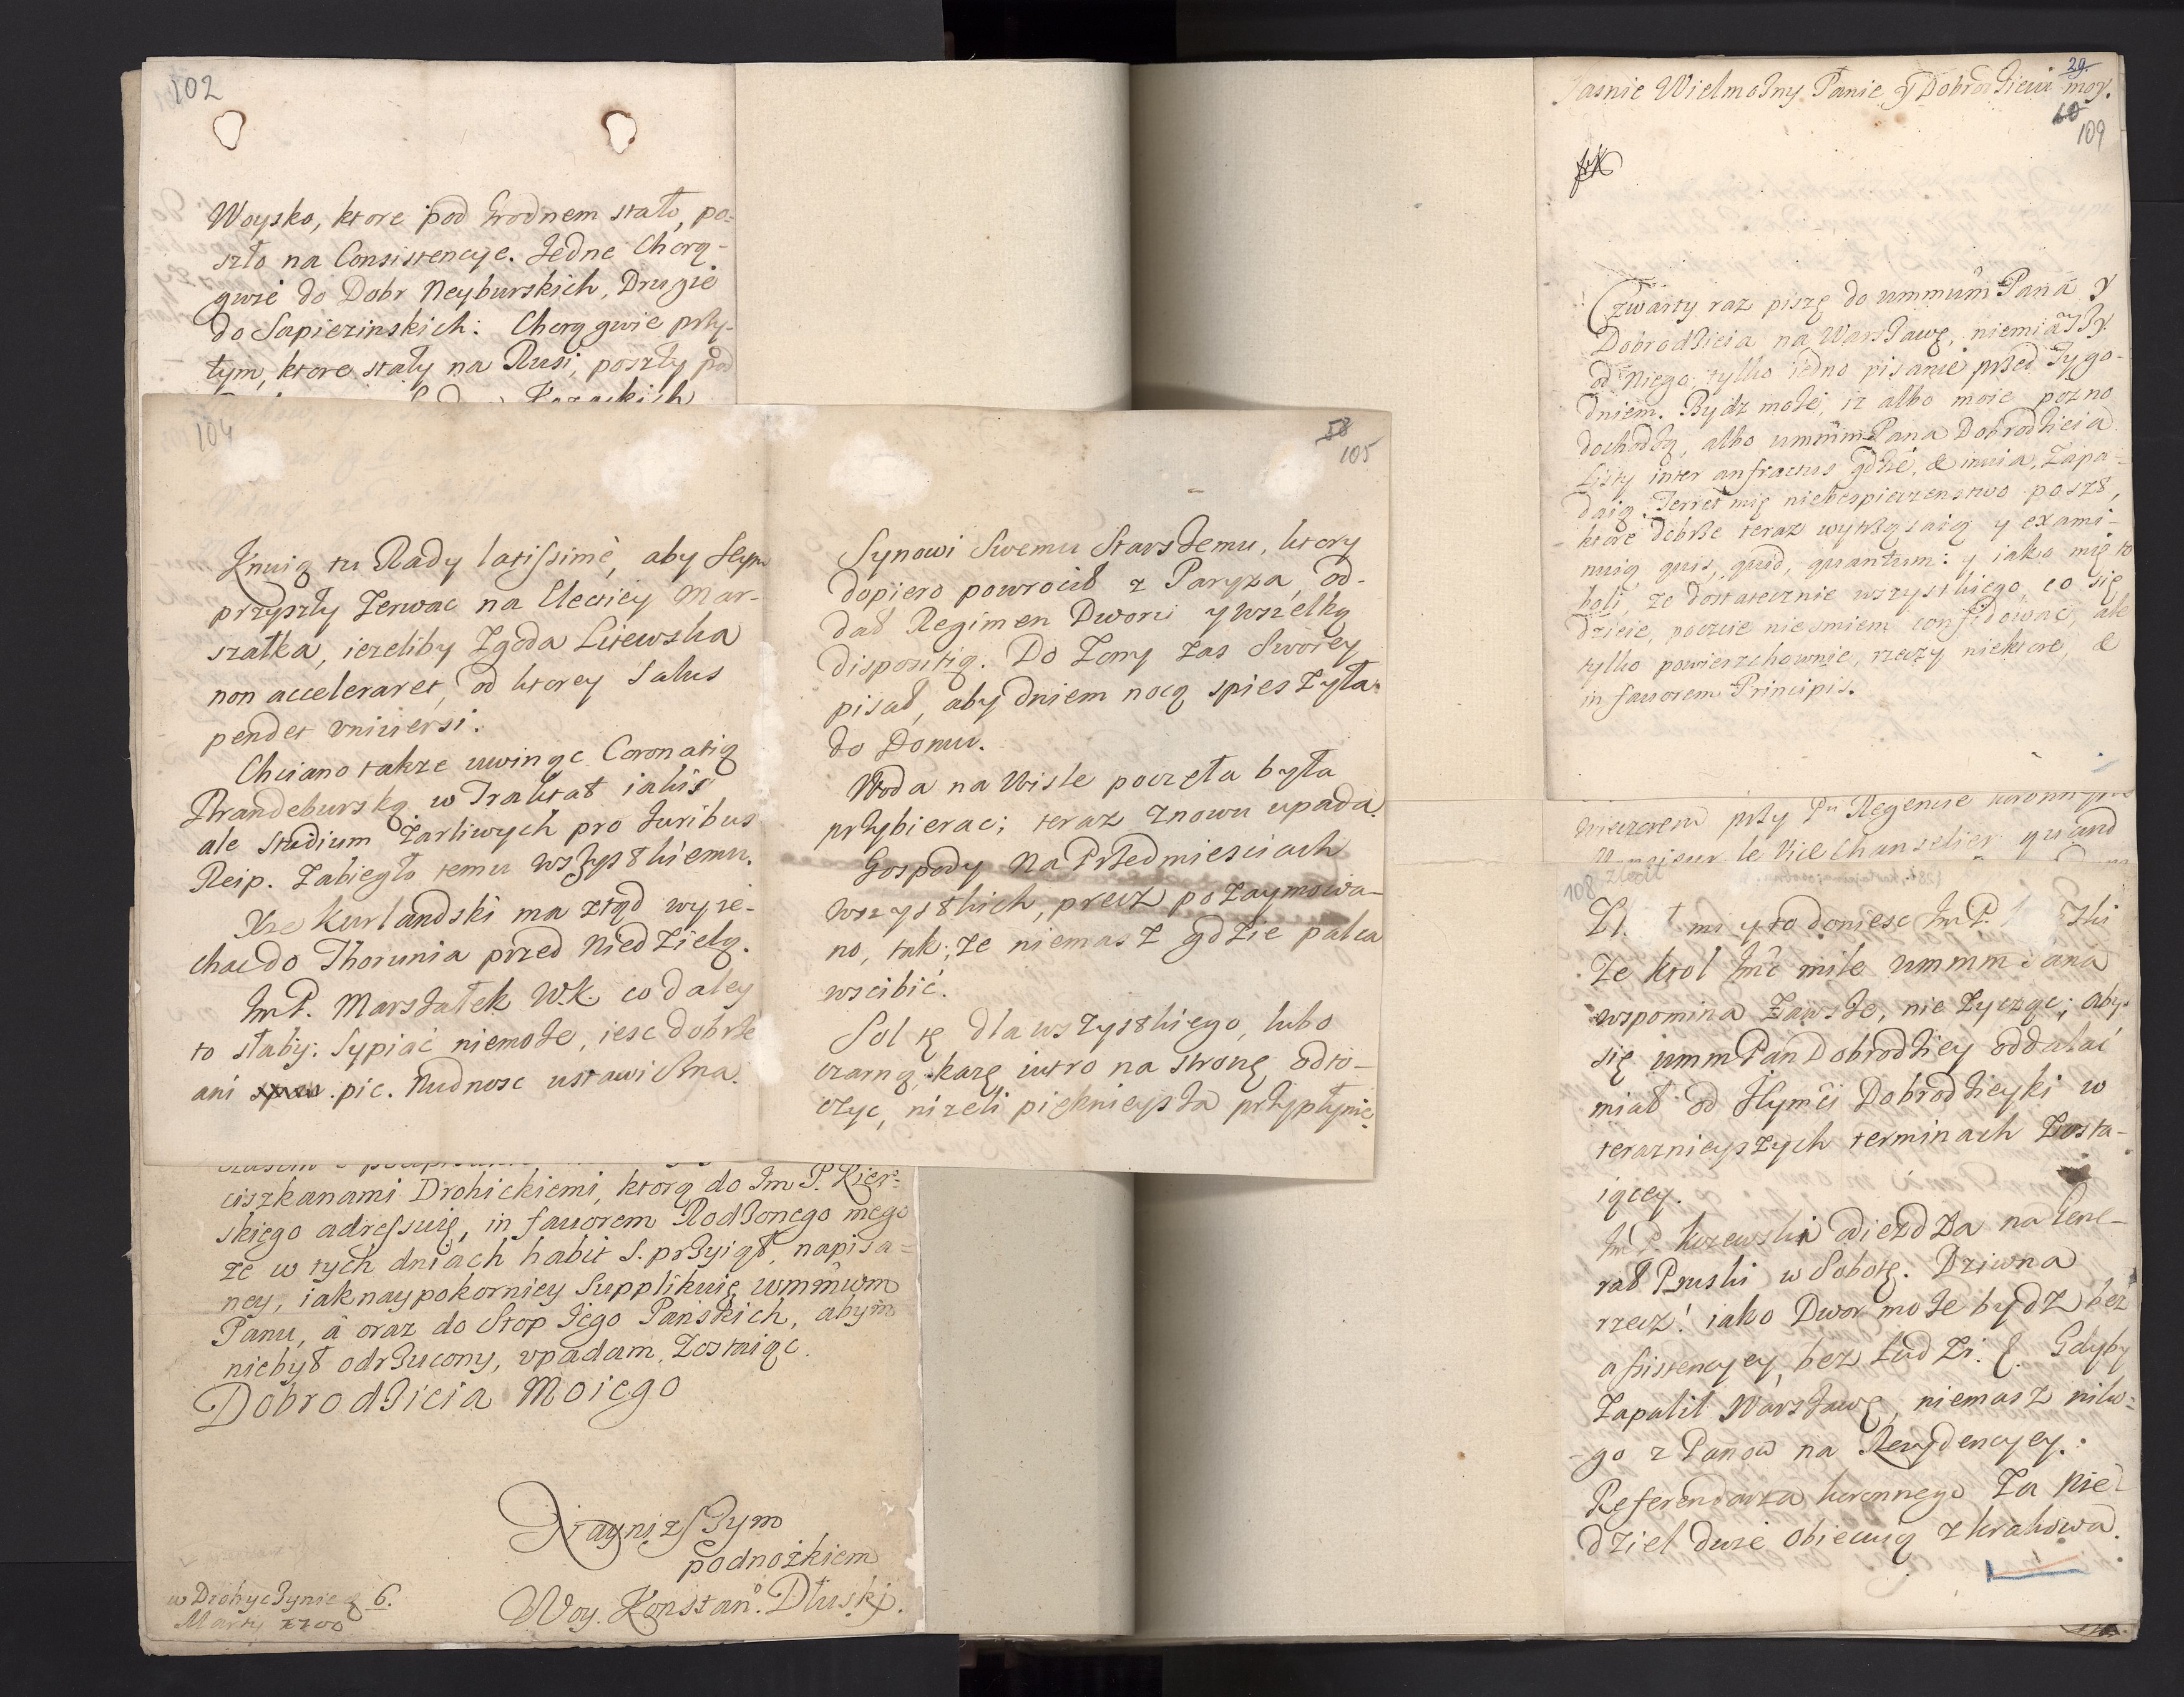 102
Woysko, ktore pod Grodnem stało, po=
szło na Consistencye. Jedne Chorą-
gwie do Dobr Neyburskich, Drugie
do Sapiezinskich: Chorągwie przy-
tym, ktore stały na Rusi, poszły pod
Kozackich
104
Knuią tu Rady latissimè, aby Seym
przyszły Zerwac na Electiey Mar-
szałka, iezeliby Zgoda Litewska
non acceleraret, od ktorey Salus
pendet vniuersi.
Chciano takze uwinąc Coronatią
Brandeburską w Traktat iakiś
ale studium Żarliwych pro Juribus
Reip. Zabiegło temu wszystkiemu.
Xze Kurlandski ma ztąd wyie-
chac do Thorunia przed Niedzielą.
ImP. Marszałek W.K. co daley
to słaby: Sypiać niemoże, iesc dobrze
ani pic. Nudnosc ustawiczna.
58
105
Synowi Swemu Starszemu, ktory
dopiero powrocił z Paryza, od-
dał Regimen Dworu y wszelką
dispozitią. Do Zony zas Swoiey
pisał, aby dniem nocą spieszyła
do Domu.
Woda na Wisle poczęła była
przybierac; teraz znowu upada.
Gospody na Przedmiesciach
wszystkich, precz pozaymowa-
no, tak; ze niemasz gdzie palca
wscibić.
Sol tę dla wszystkiego, lubo
czarną, karę iutro na stronę odto-
czyc, nizeli pięknieysza przypłynie.
ciszkanami Drohickiemi, ktorą do Im P. Kier-
skiego adressuię, in fauorem Rodzonego mego
ze w tych dniach habit S. przyiął, napisa=
ney, iaknaypokorniey Supplikuię wmmwm
Panu, á oraz do Stop Jego Pańskich, abym
niebył odrzucony, vpadam, Zostaiąc.
Dobrodzieia Moiego
Nayniższym
podnożkiem
Woy. Konstan. Dłuski.
w Drohyczynie 6.
Marty 1700
29.
Jasnie Wielmożny Panie y Dobrodzieiu moy.
60
109
Czwarty raz piszę do ummum Pana y
Dobrodzieia na Warszawę, niemiawszy
od Niego, tylko iedno pisanie przed Tygo-
dniem. Bydz może, iz albo moie pozno
dochodzą, albo ummm Pana Dobrodzieia
Listy inter anfractus gdzie, & inuia, Zapa-
daią. Terret mię niebespieczenstwo poszt,
ktore dobrze teraz wytrząsaią y exami-
nuią, quis, quid, quantum: y iako mię to
boli, ze dostatecznie wszystkiego, co się
dzieie, poczcie niesmiem confidować, ale
tylko powierzchownie, rzeczy niektore, &
in fauorem Principis.
wieczorem przy Pu Regencie koronnym
Monsieur le Vice Chanselier quand
108
Zl mi y to doniesc ImP.
Ze krol Jmć mile ummm Pana
wspomina Zawsze, nie Zycząc; aby
się umm Pan Dobrodziey oddalać
miał od Jeymći Dobrodzieyki w
teraznieyszych terminach Zosta-
iącey.
ImP. Kczewski odiezdza na Gene-
rał Pruski w Sobotę. Dziwna
rzecz! iako Dwor może bydz bez
assistencyey, bez Ludzi. &. Gdyby
Zapalil Warszawę, niemasz niko=
go z Panow na Rezydencyey.
Referendarza koronnego Za Nie-
dziel dwie obiecuią z Krakowa.